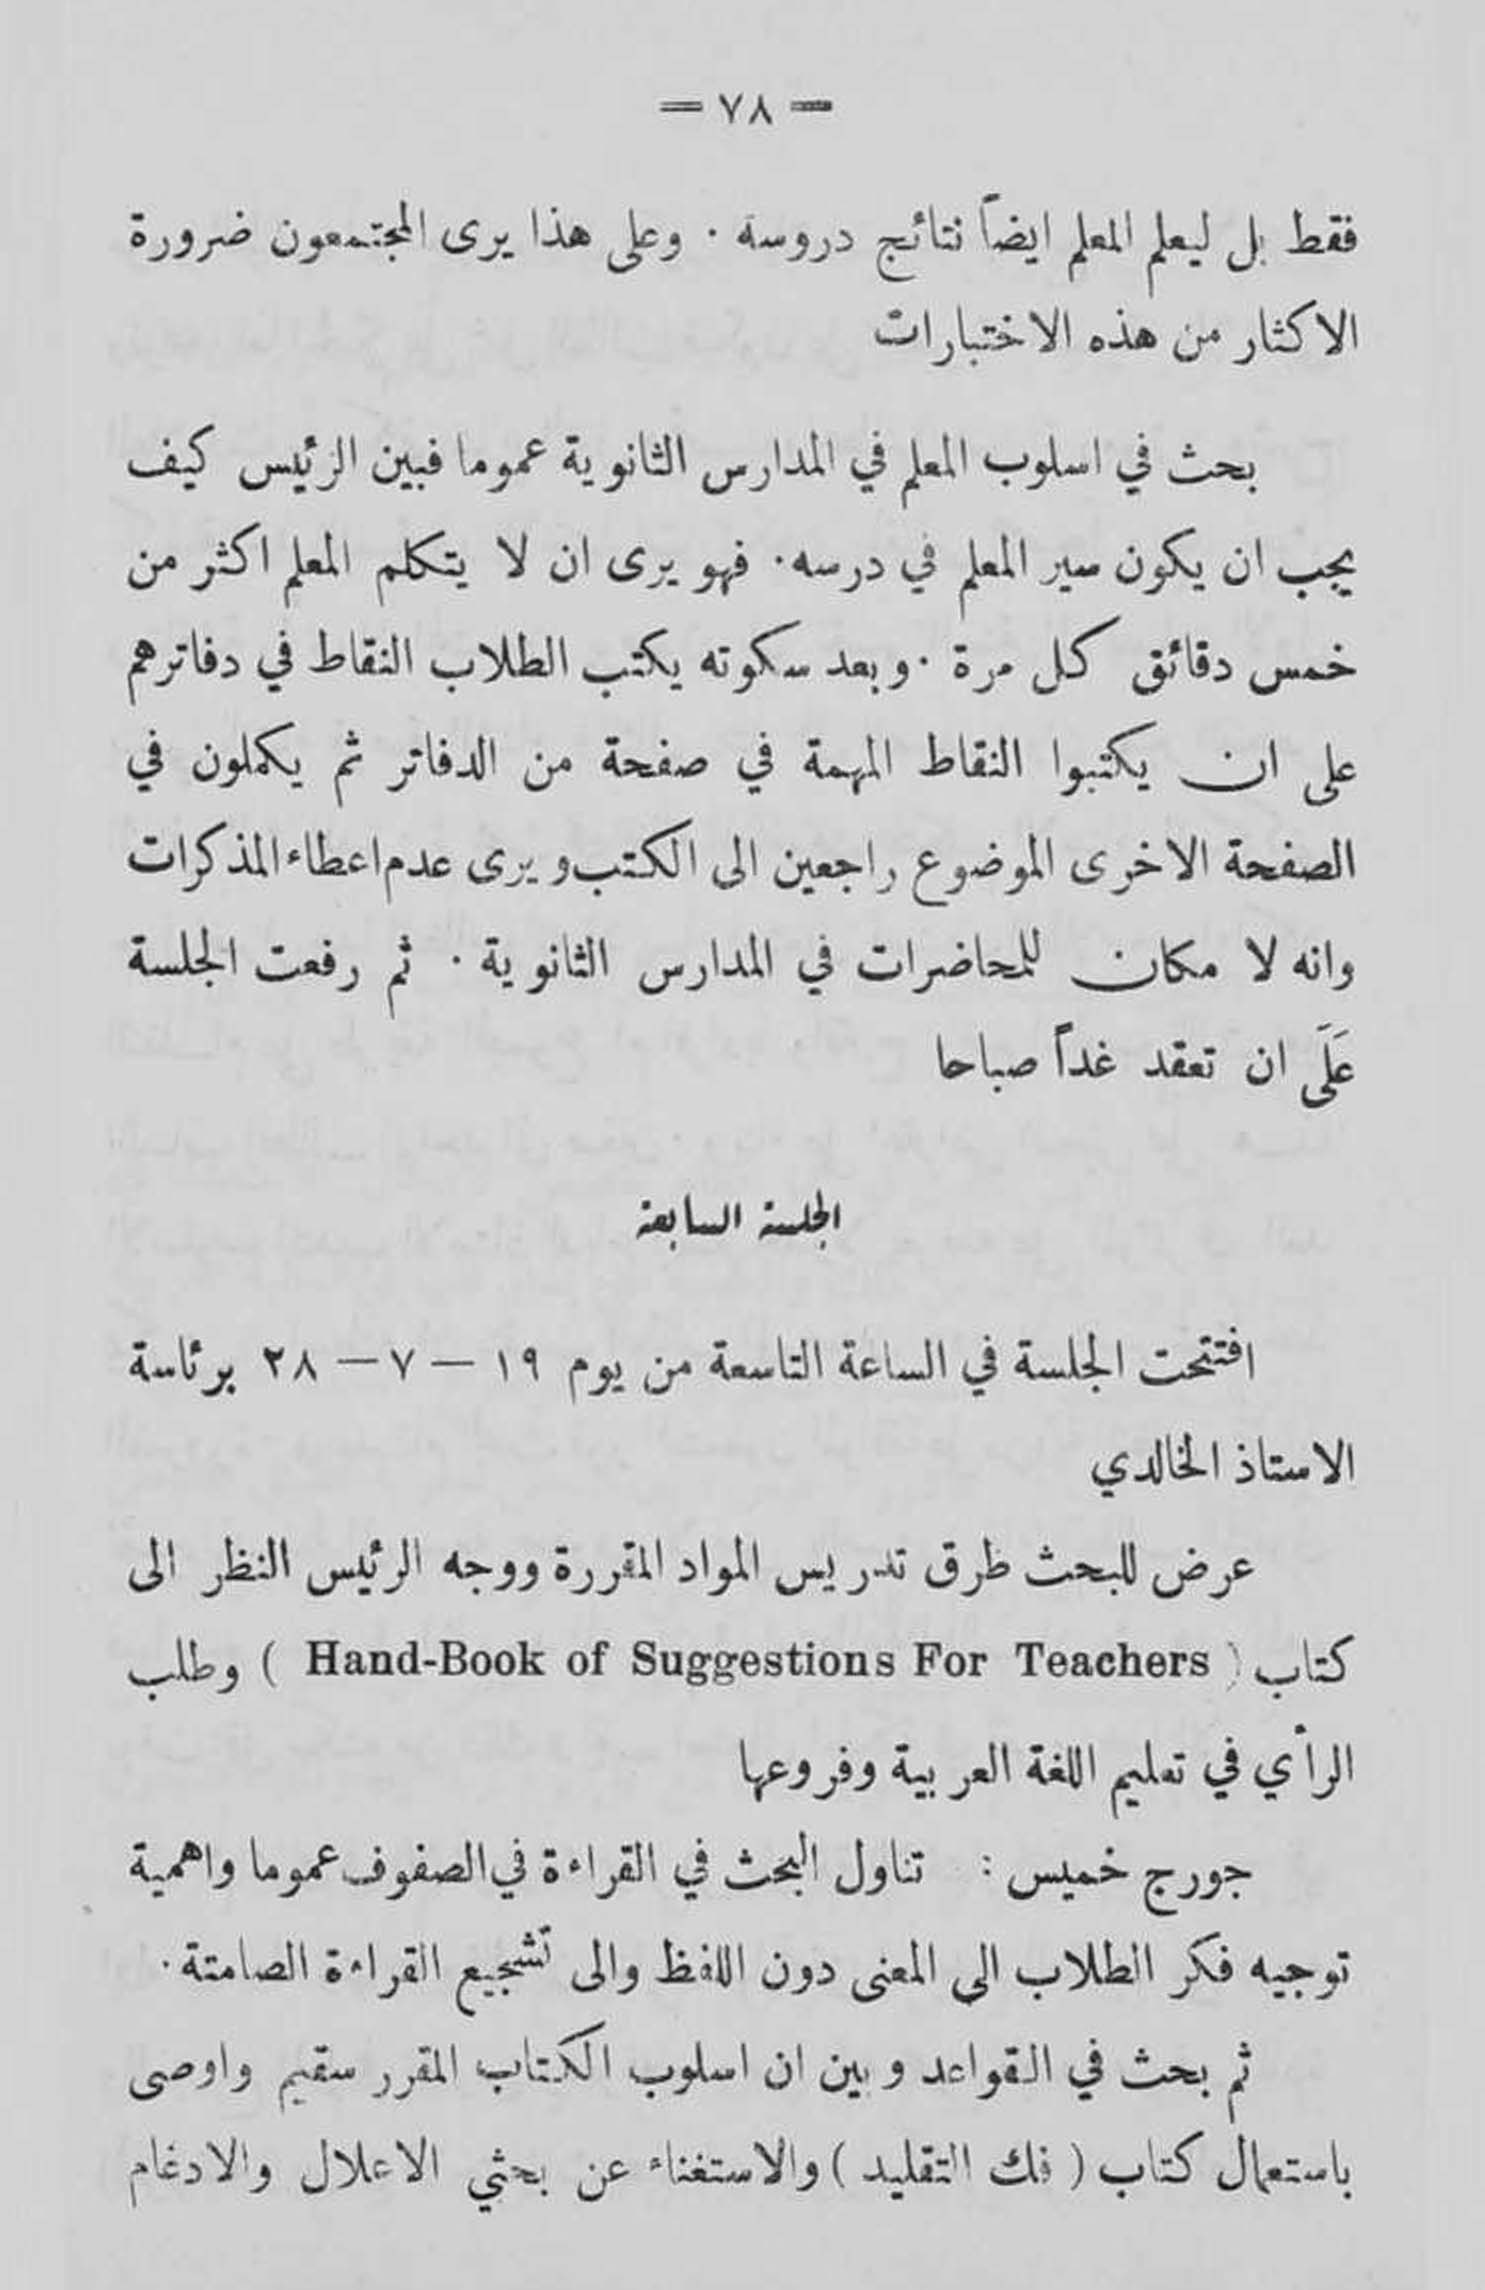 = ٧٨ =
فقط بل ليعلم المعلم ايضاً نتائج دروسه . وعلى هذا يرى المجتمعون ضرورة
الاكثار من هذه الاختبارات
بحث في اسلوب المعلم في المدارس الثانوية عموما فبين الرئيس كيف
يجب ان يكون سير المعلم في درسه . فهو يرى ان لا يتكلم المعلم اكثر من
خمس دقائق كل مرة . وبعد سكوته يكتب الطلاب النقاط في دفاترهم
على ان يكتبوا النقاط المهمة في صفحة من الدفاتر ثم يكملون في
الصفحة الاخرى الموضوع راجعين الى الكتب ويرى عدم اعطاء المذكرات
وانه لا مكان للمحاضرات في المدارس الثانوية . ثم رفعت الجلسة
عَلَى ان تعقد غداً صباحا
الجلسة السابعة
افتتحت الجلسة في الساعة التاسعة من يوم ١٩ — ٧ — ٢٨ برئاسة
الاستاذ الخالدي
عرض للبحث طرق تدريس المواد المقررة ووجه الرئيس النظر الى
كتاب ( Hand-Book of Suggestions For Teachers ) وطلب
الرأي في تعليم اللغة العربية وفروعها
جورج خميس : تناول البحث في القراءة في الصفوف عموما واهمية
توجيه فكر الطلاب الى المعنى دون اللفظ والى تشجيع القراءة الصامتة .
ثم بحث في القواعد وبين ان اسلوب الكتاب المقرر سقيم واوصى
باستعمال كتاب ( فك التقليد ) والاستغناء عن بحثي الاعلال والادغام